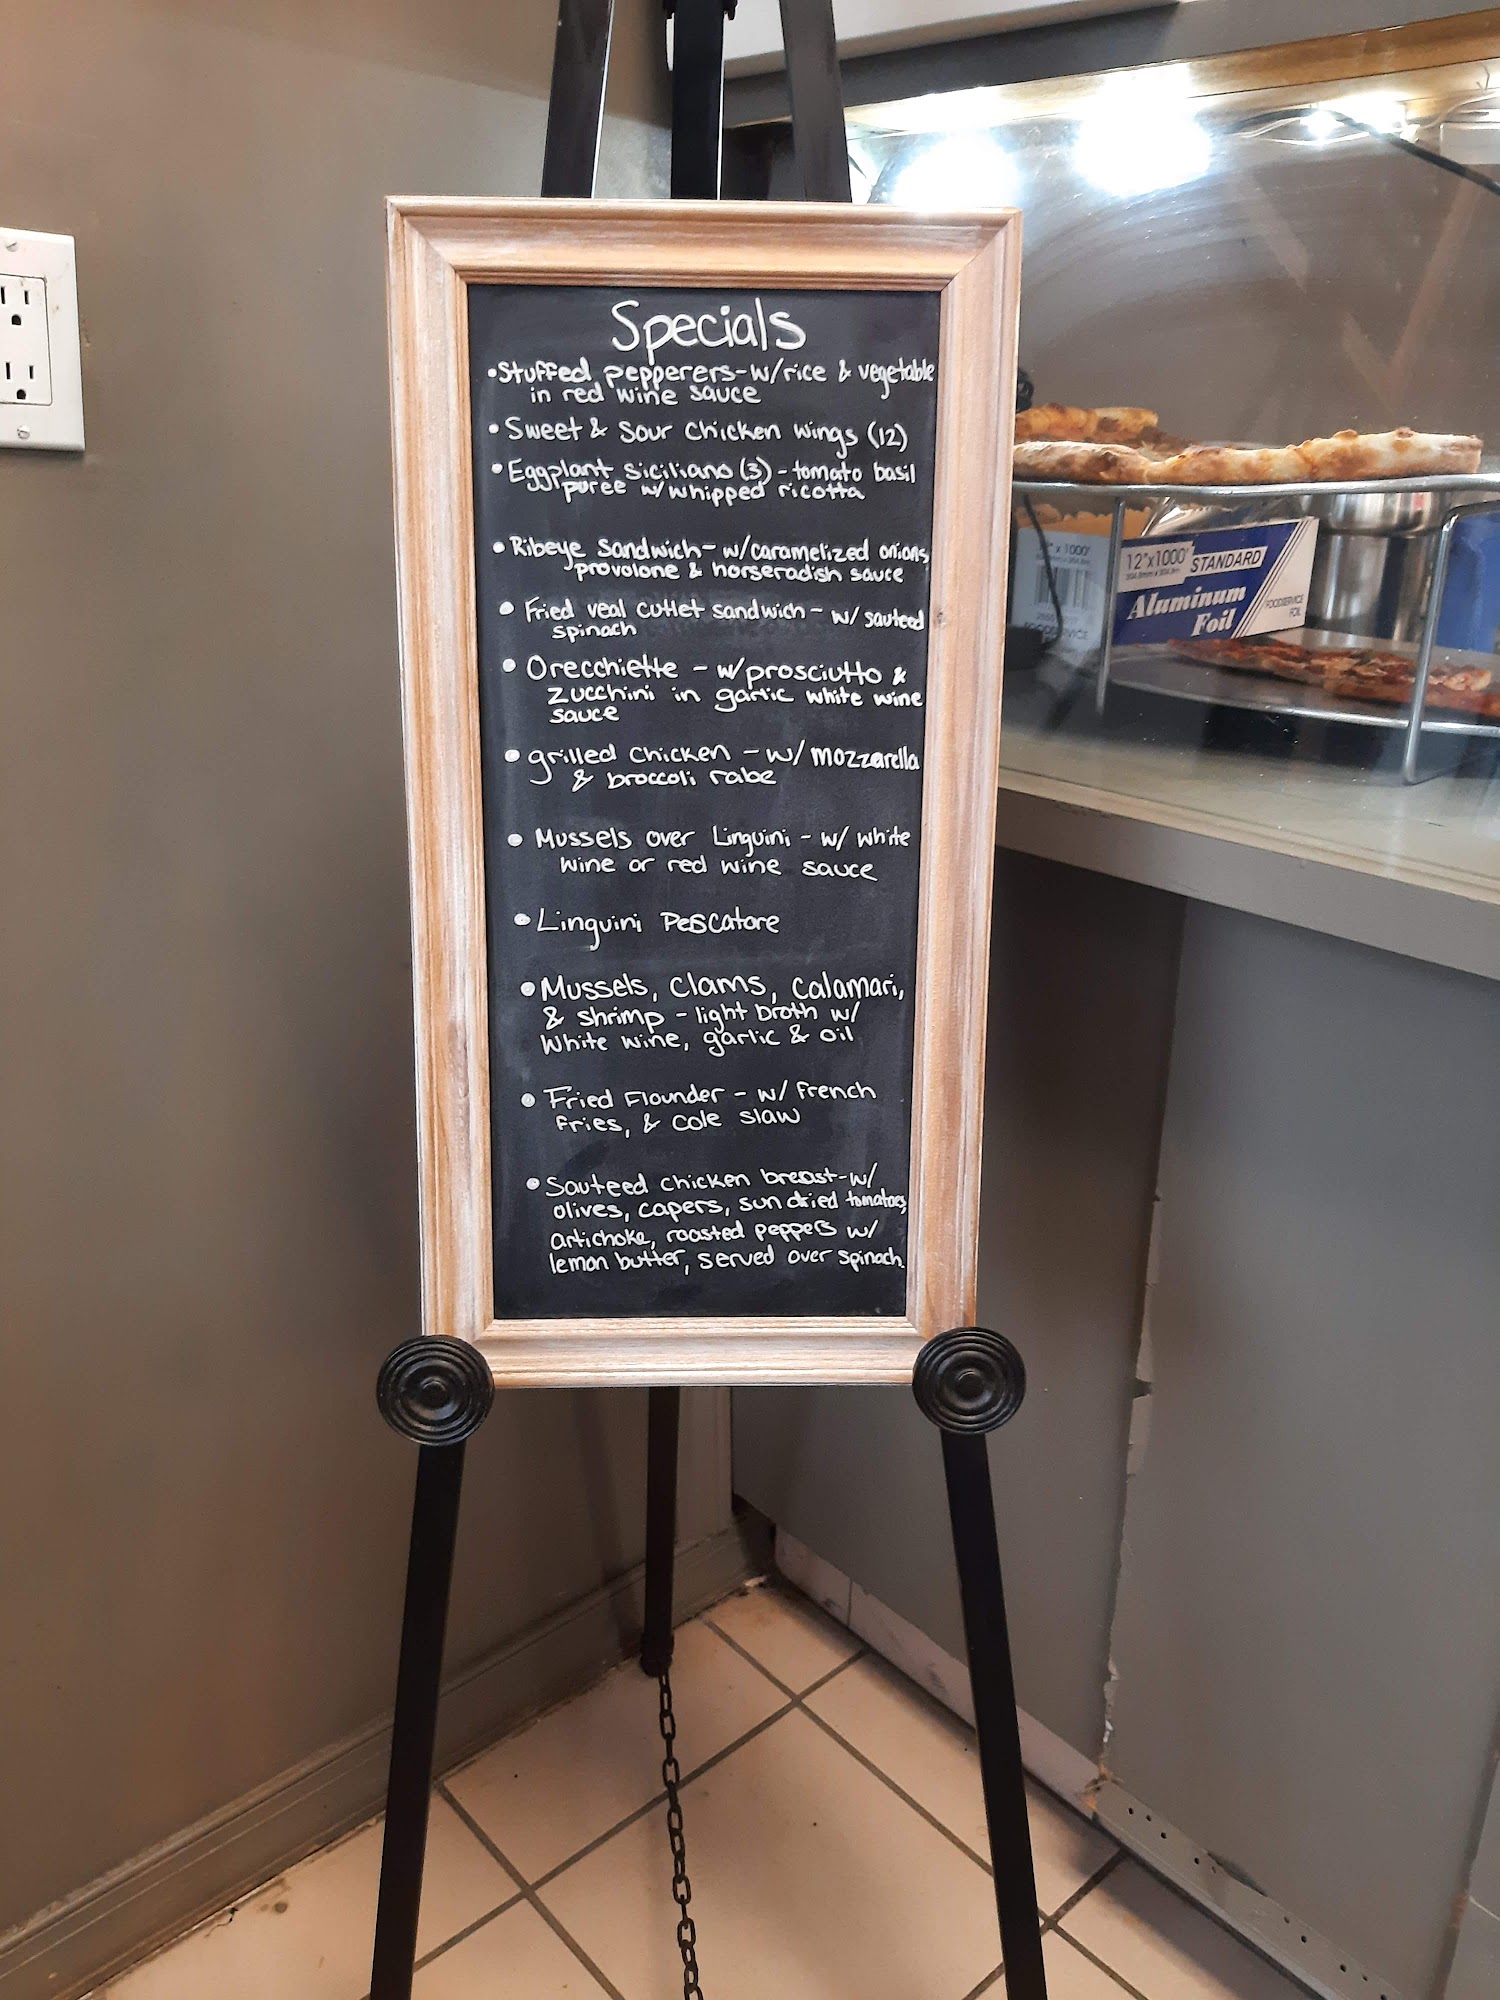 Specials
•Stuffed pepperers-w/rice & vegetable
in red wine sauce
•Sweet & Sour Chicken Wings (12)
•Eggplant Siciliano (3) - tomato basil
puree w/whipped ricotta
•Ribeye Sandwich- w/caramelized onions,
provolone & horseradish sauce
•Fried veal cutlet sandwich - w/ sauteed
spinach
•Orecchiette - w/prosciutto &
zucchini in garlic white wine
sauce
•grilled chicken - w/ mozzarella
& broccoli rabe
•Mussels over Linguini - w/ white
wine or red wine sauce
•Linguini Pescatore
•Mussels, clams, calamari,
& shrimp - light broth w/
White wine, garlic & oil
•Fried Flounder - w/ French
Fries, & cole slaw
•Sauteed chicken breast-w/
olives, capers, sun dried tomatoes,
artichoke, roasted peppers w/
lemon butter, served over spinach.
x 1000'
12"x1000' STANDARD
Aluminum
Foil
FOODSERVICE
FOIL